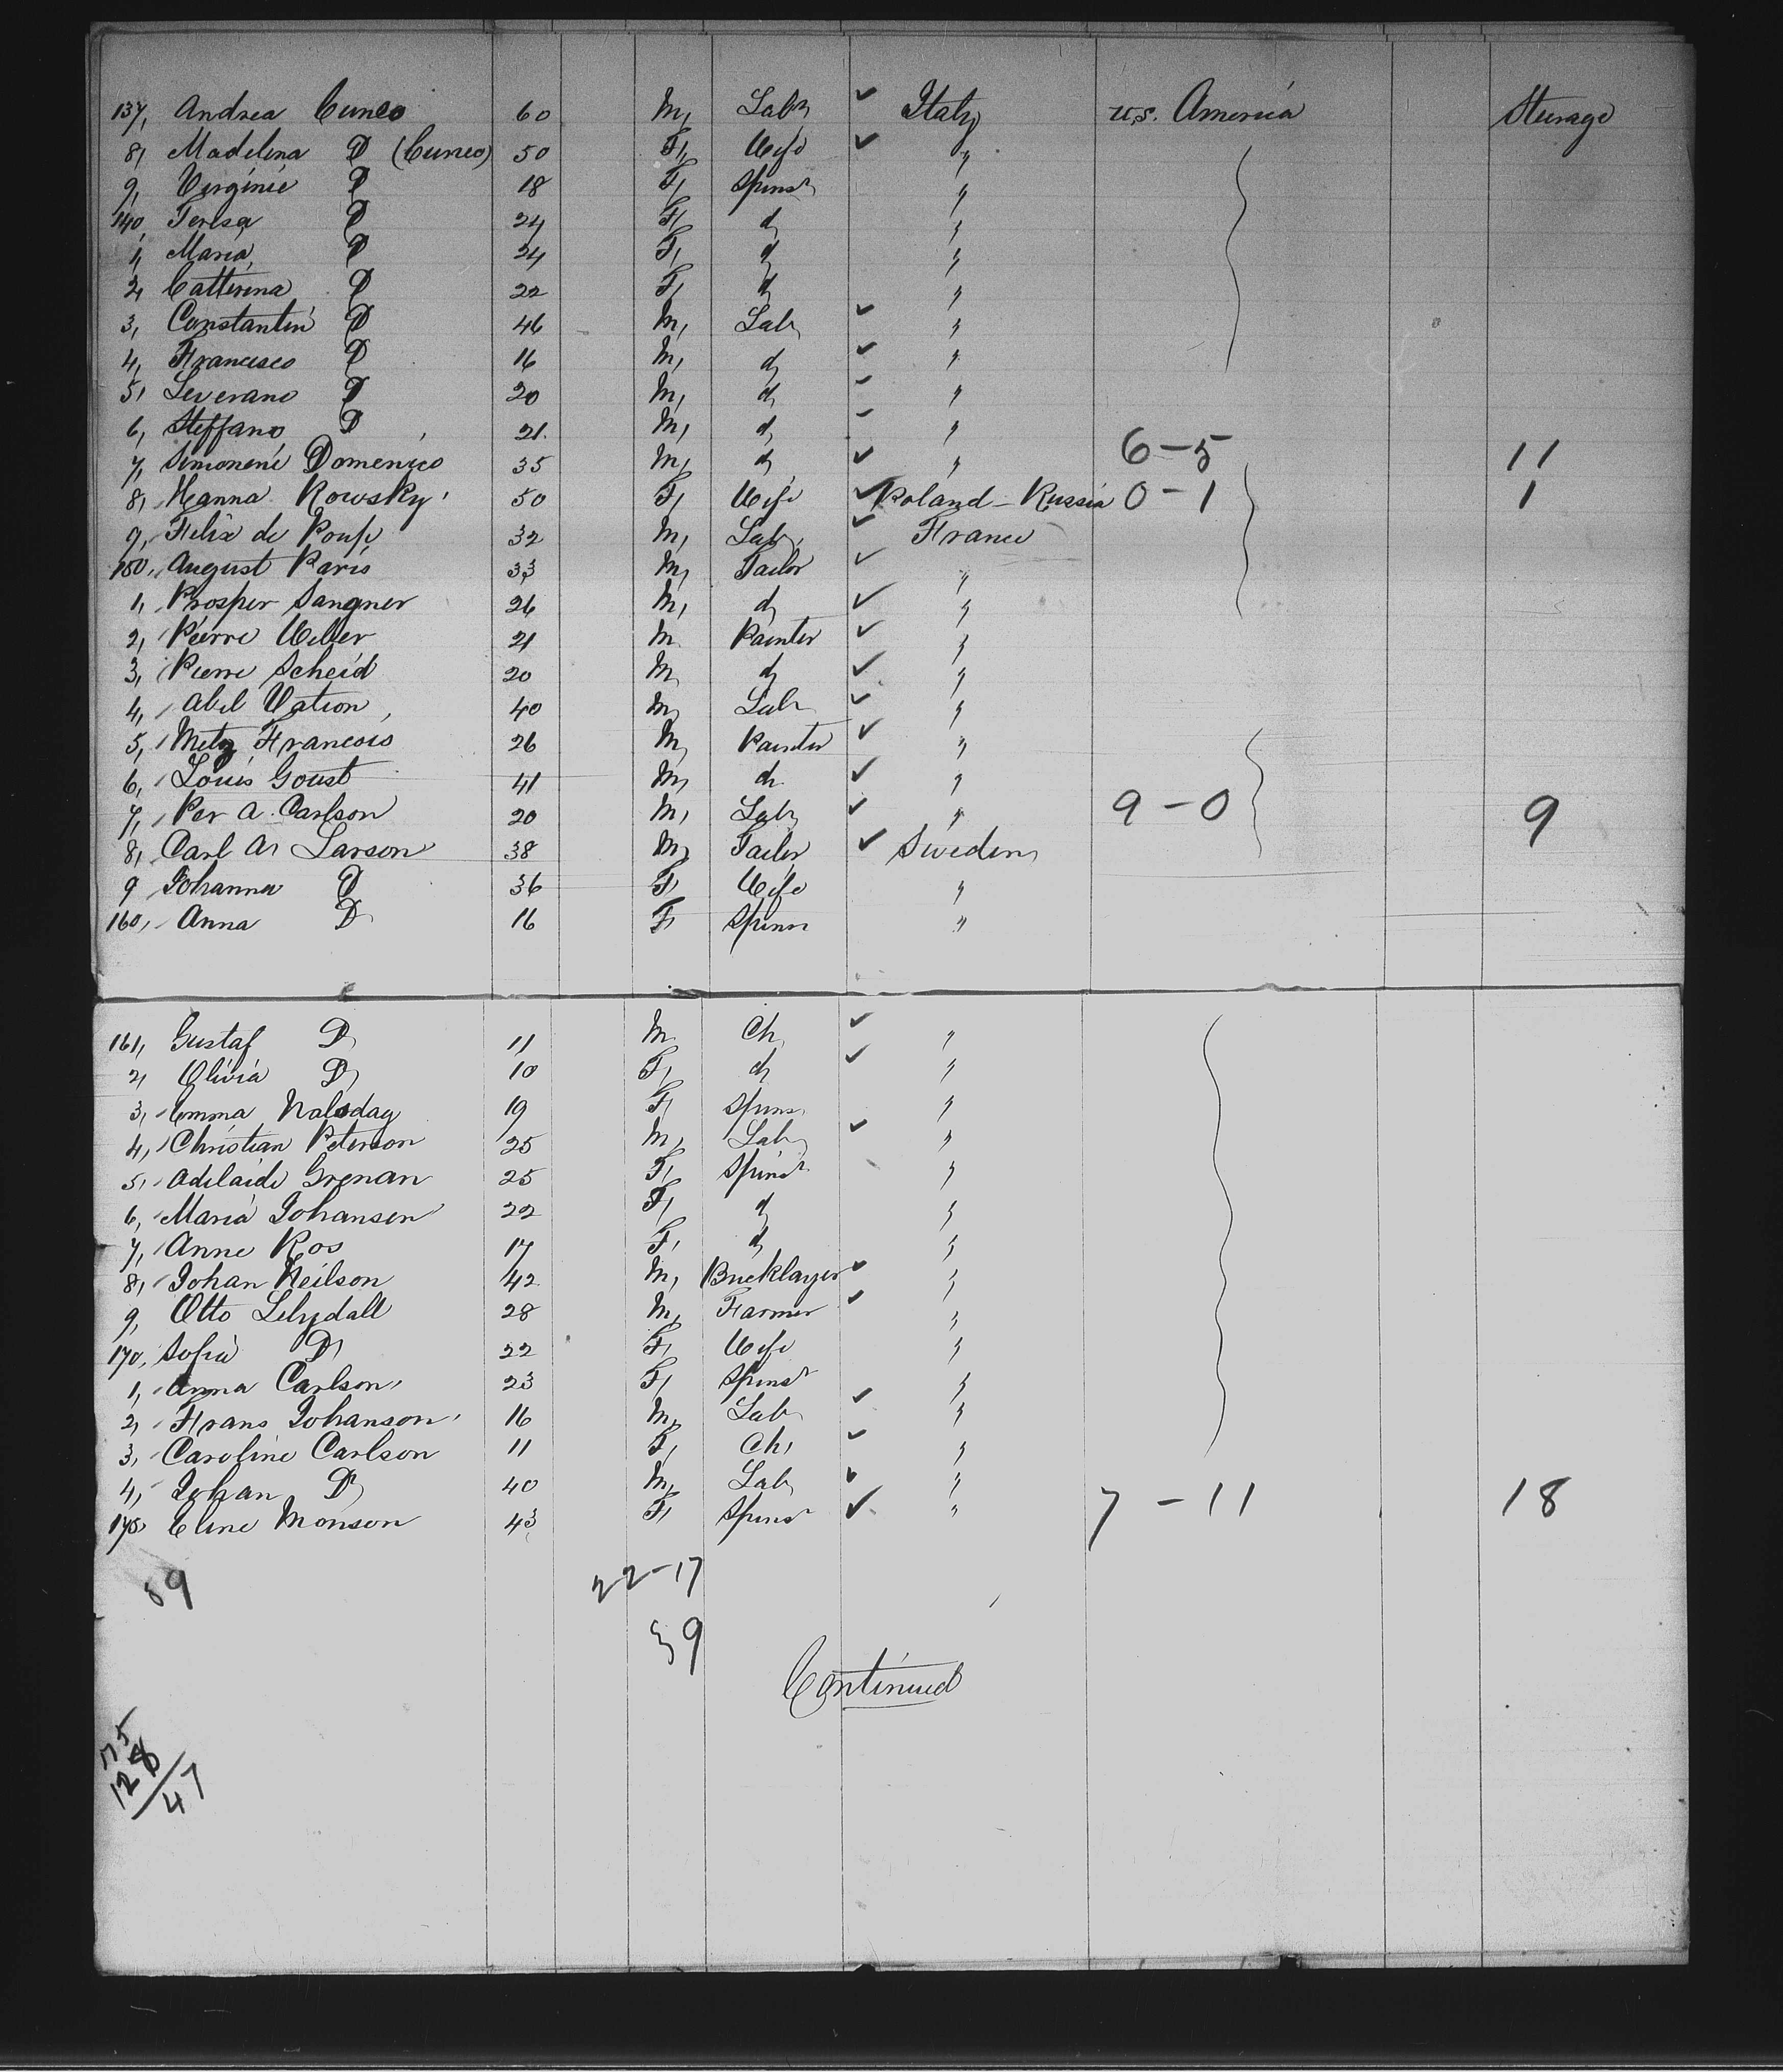 137, Andrea Cuneo 60 M, Labr ✓ Italy U.S. America Sterage
8, Madelina D (Cuneo) 50 F, Wife ✓ "
9, Virginie D 18 F, Spinsr "
140, Teresa D 24 F, d "
1, Maria D 24 F, d "
2, Catterina D 22 F, d "
3, Constantin D 46 M, Lab ✓ "
4, Francisco D 16 M, d ✓ "
5, Severano D 20 M, d "
6, Steffano D 21. M, d "
7, Simoneni Domenico 35 M, d ✓ " 6-5 11
8, Hanna Rowsky 50 F, Wife ✓ Poland-Russia 0-1 1
9, Felix de 32 M, Lab, ✓ France
150, August Paris 33 M, Tailor ✓ "
1, Prosper Sangner 26 M, d ✓ "
2, Pierre Weber 21 M Painter ✓ "
3, Pierre Scheid 20 M, d ✓ "
4, Abel Vation 40 M, Lab ✓ "
5, Metz Francois 26 M, Painter ✓ "
6, Louis Goust 41 M, d ✓ "
7, Per A. Carlson 20 M, Lab ✓ " 9-0 9
8, Carl A, Larson 38 M, Tailor ✓ Sweden
9 Johanna D 36 F, Wife "
160, Anna D 16 F, Spinsr "
161, Gustaf D 11 M Ch, ✓ "
2, Olivia D 10 F, d ✓ "
3, Emma Nalsdag 19 F, Spins "
4, Christian Peterson 25 M, Lab ✓ "
5, Adelaide Grenan 25 F, Spinsr "
6, Maria Johansen 22 F, d "
7, Anne Ros 17 F, d "
8, Johan Neilson 42 M, Bricklayer ✓ "
9, Otto Lilydall 28 M, Farmer ✓ "
170, Sofia D 22 F, Wife "
1, Anna Carlson 23 F, Spinsr "
2, Frans Johanson 16 M, Lab ✓ "
3, Caroline Carlson 11 F, Ch, ✓ "
4, Johan D 40 M, Lab ✓ "
175, Eline Monson 43 F, Spinsr ✓ " 7-11 18
39 22-17
39
Continued
175
128
47